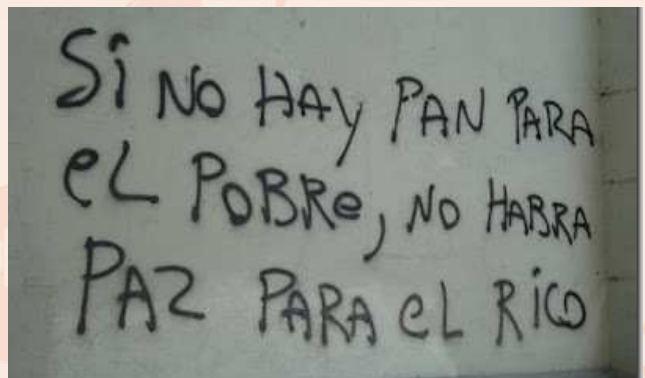 Si NO HAY PAN PARA
eL POBRe, NO HABRA
PAZ PARA eL RiCO